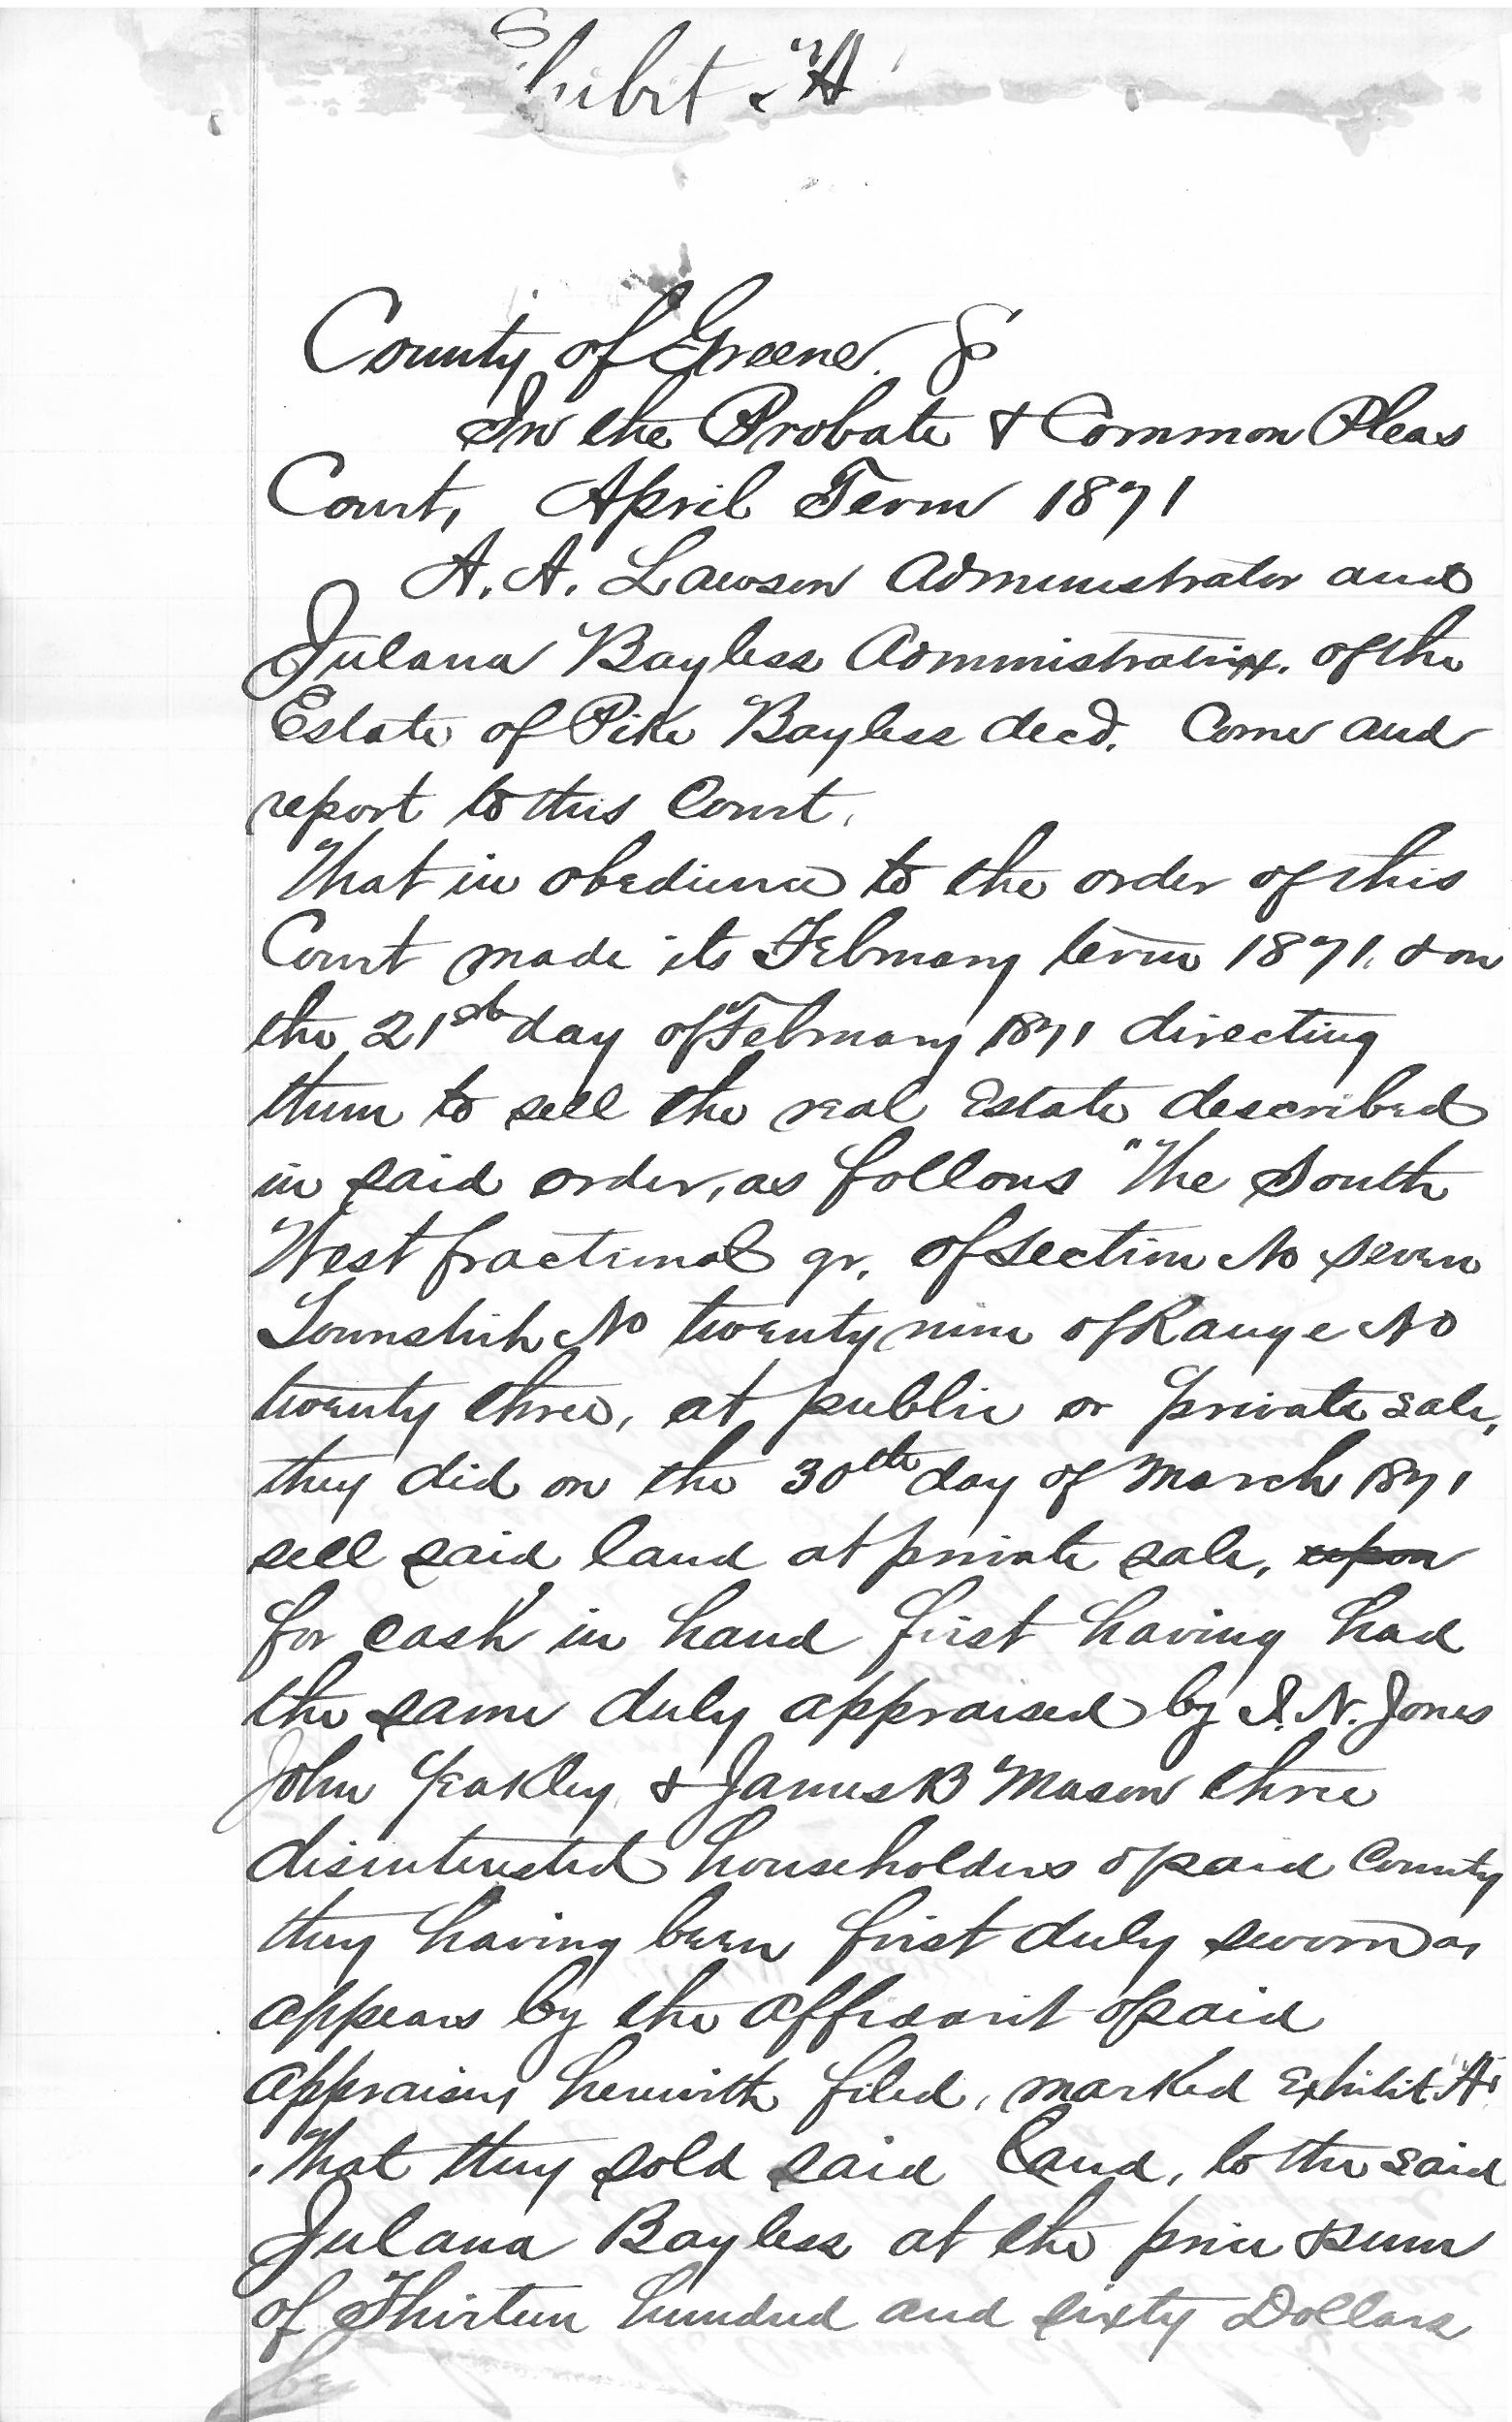 Exhibit "A"
County of Greene. S
In the Probate & Common Pleas
Court, April Term 1871
A. A. Lawson Administrator and
Julana Bayless Administratrix. of the
Estate of Pike Bayless decd. Come and
report to this Court.
That in obedience to the order of this
Court made its February term 1871. & on
the 21st day of February 1871 directing
them to sell the real Estate described
in said order, as follows "The South
West fractional qr. of Section No seven
Township No twenty nine of Range No
twenty three, at public or private sale,
they did on the 30th day of March 1871
sell said land at private sale, upon
for cash in hand first having had
the same duly appraised by I. N. Jones
John Yeakley & James B Mason three
disinterested householders of said County
they having been first duly sworn as
appears by the affidavit of said
appraisers herewith filed, marked Exhibit "A"
That they sold said land, to the said
Julana Bayless at the price & sum
of Thirteen hundred and sixty Dollars